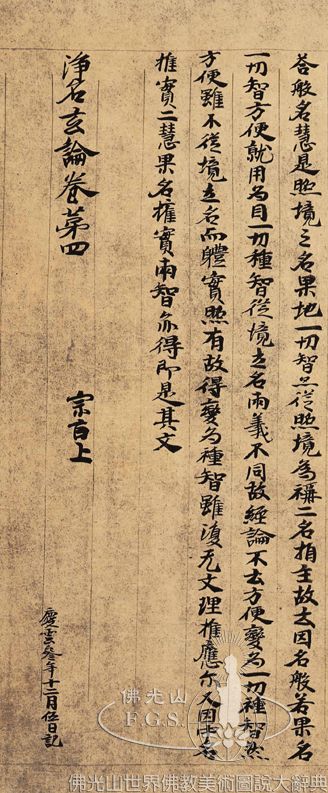 荅般名慧是照境之名果地一切智品従照境為稱二名相主故去因名般若果名
一切智方便就用為目一切種智従境立名兩義不同故経論不去方便變為一切種智然
方便雖不従境立名而軆實照有故得變為種智雖復无文理推應尓又因中名
權實二慧果名權實兩智亦得即是其文
淨名玄論卷第四
宗百上
慶雲叄年十二月伍日記
佛光山
F.G.S.
佛光山世界佛教美術圖說大辭典